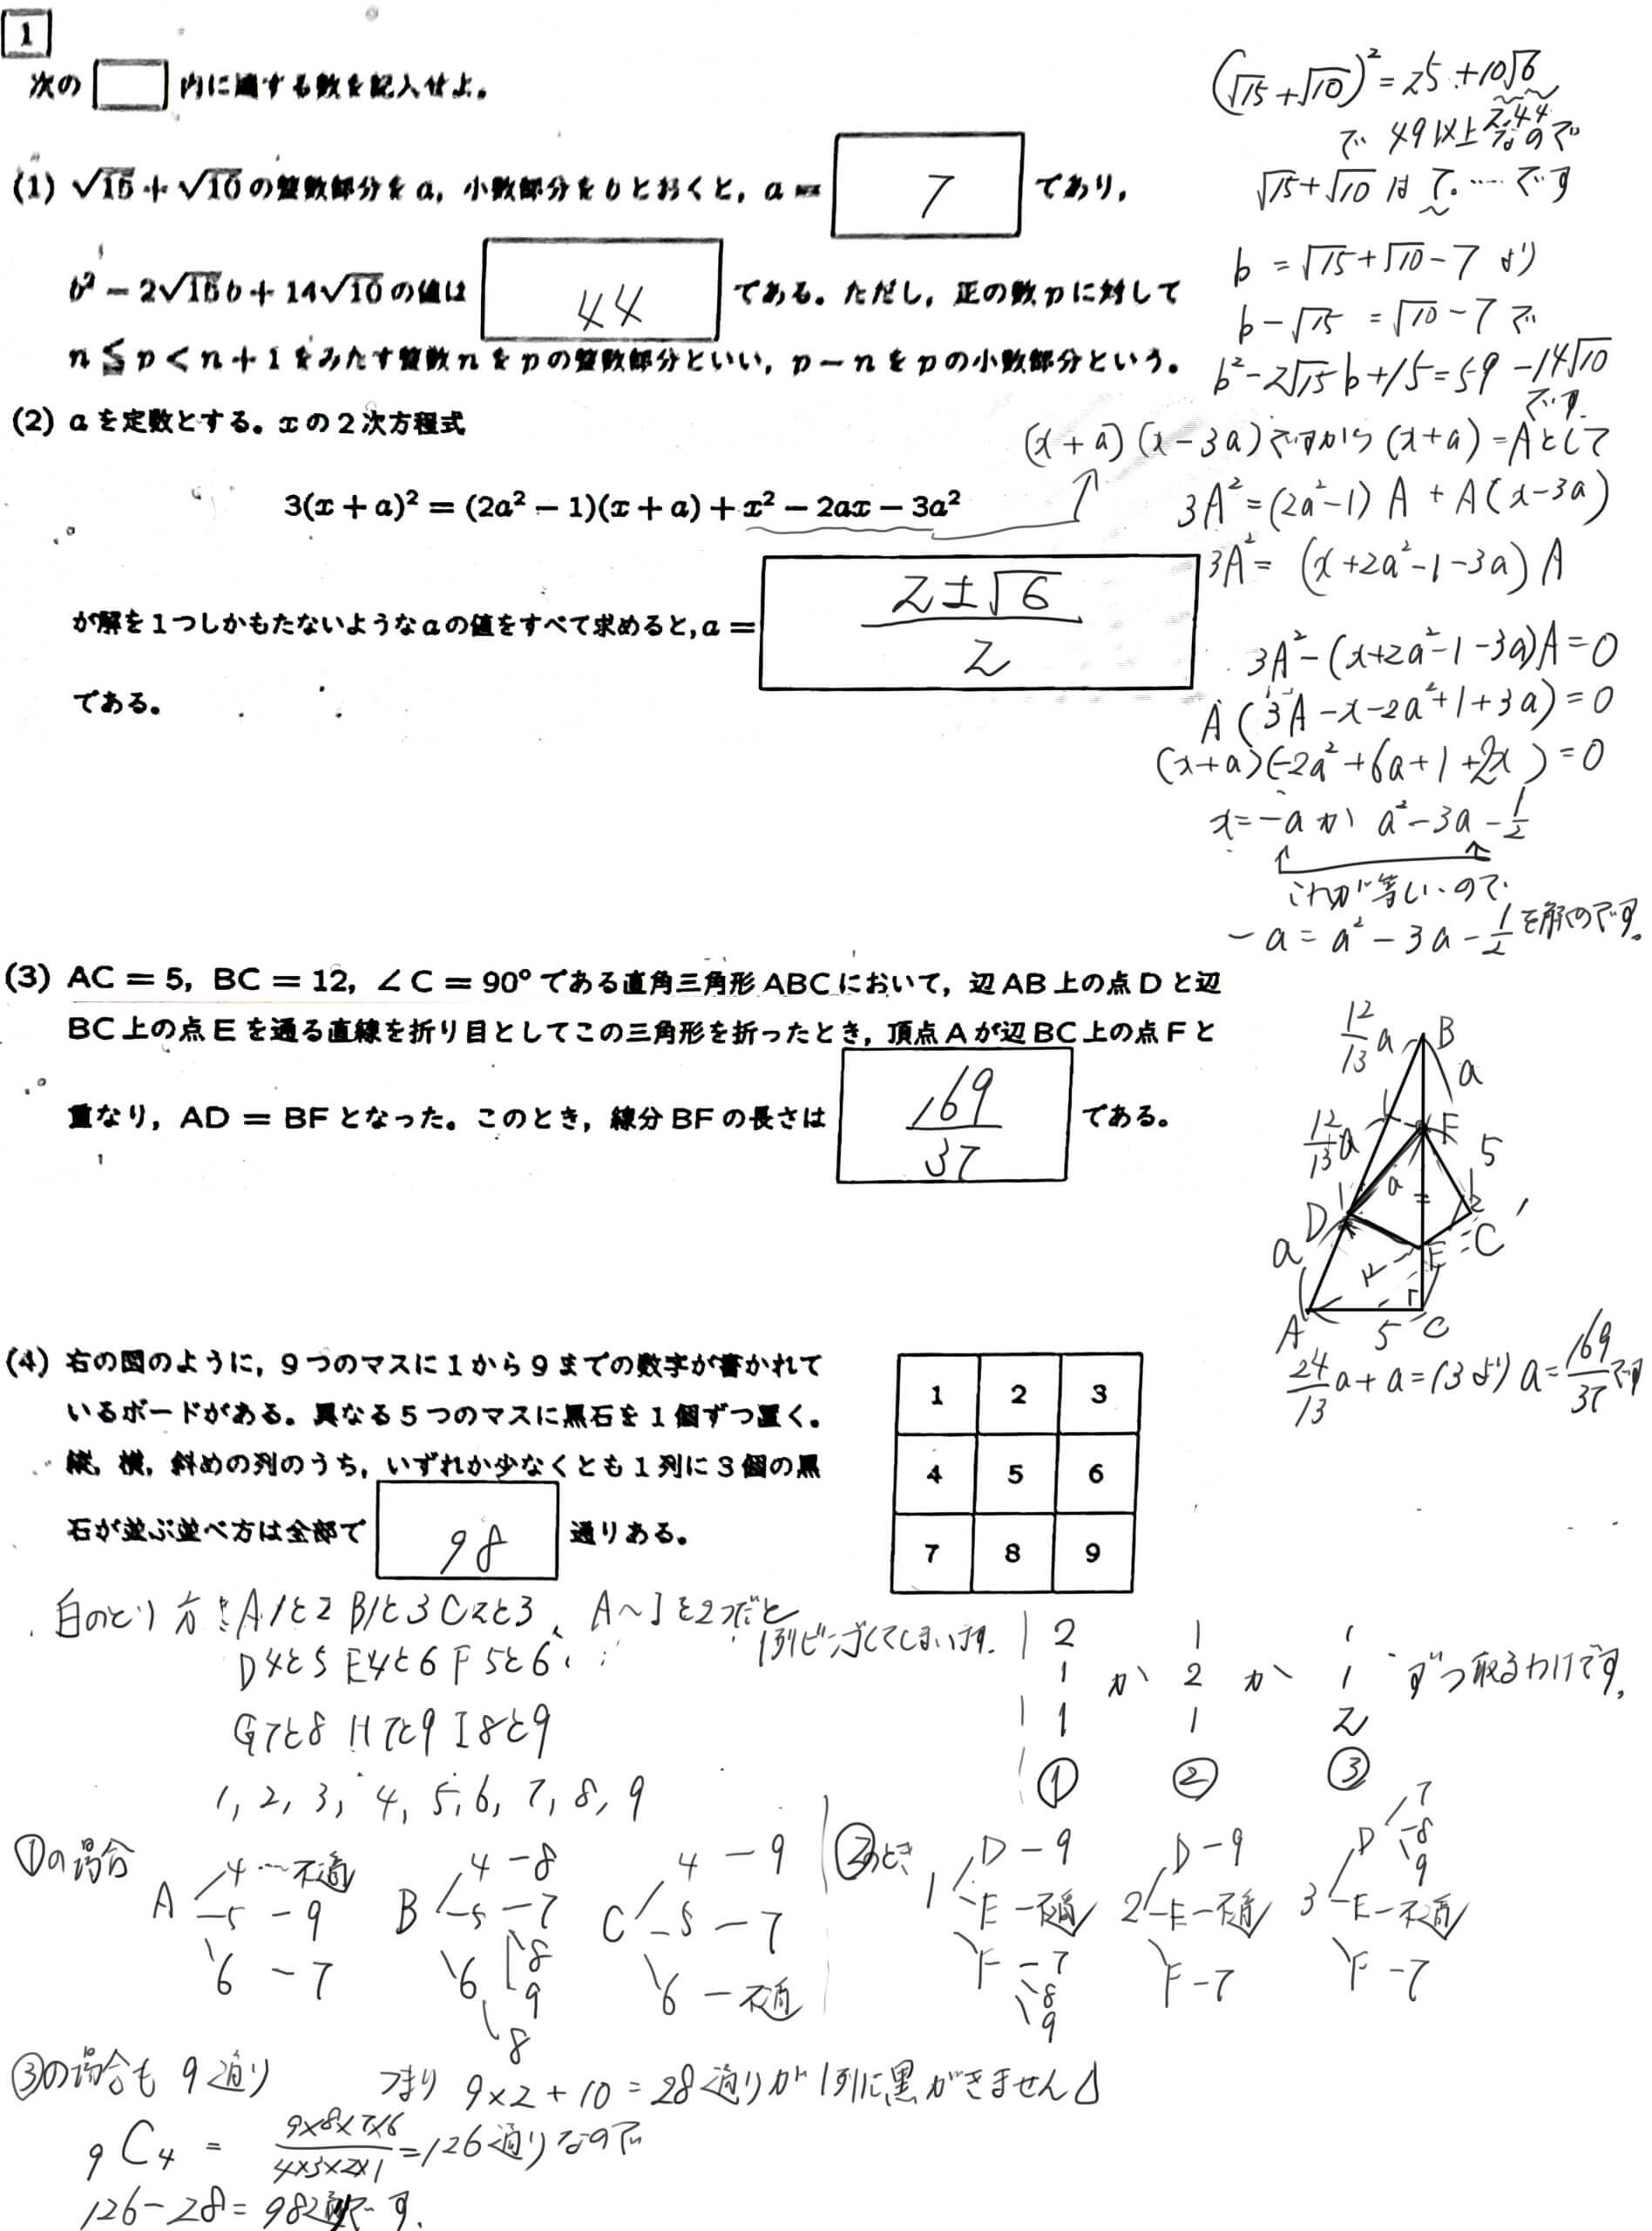 1
次の 内に適する数を記入せよ。
(1) √15+√10の整数部分をa, 小数部分をbとおくと, a= 7 であり,
b²-2√15b+14√10の値は 44 である。ただし, 正の数pに対して
n≦p<n+1をみたす整数nをpの整数部分といい, p-nをpの小数部分という。
(√15+√10)²=25+10√6
2.44
で 49以上なので
√15+√10 は 7.…です
b=√15+√10-7 より
b-√15=√10-7 で
b²-2√15b+15=59-14√10
です.
(2) aを定数とする。xの2次方程式
3(x+a)²=(2a²-1)(x+a)+x²-2ax-3a²
が解を1つしかもたないようなaの値をすべて求めると, a= (2±√6)/2
である。
(x+a)(x-3a)ですから(x+a)=Aとして
3A²=(2a²-1)A+A(x-3a)
3A²=(x+2a²-1-3a)A
3A²-(x+2a²-1-3a)A=0
A(3A-x-2a²+1+3a)=0
(x+a)(-2a²+6a+1+2x)=0
x=-aか a²-3a-1/2
これが等しいので
-a=a²-3a-1/2を解くのです。
(3) AC=5, BC=12, ∠C=90°である直角三角形ABCにおいて, 辺AB上の点Dと辺
BC上の点Eを通る直線を折り目としてこの三角形を折ったとき, 頂点Aが辺BC上の点Fと
重なり, AD=BFとなった。このとき, 線分BFの長さは 169/37 である。
12/13a B
a
12/13a F
5
a
D C
a E
A 5 C
24/13a+a=13より a=169/37です
(4) 右の図のように, 9つのマスに1から9までの数字が書かれて
いるボードがある。異なる5つのマスに黒石を1個ずつ置く。
縦, 横, 斜めの列のうち, いずれか少なくとも1列に3個の黒
石が並ぶ並べ方は全部で 98 通りある。
1 2 3
4 5 6
7 8 9
白のとり方をA1と2 B1と3 C2と3、A〜Iを2つだと
1列ビンゴしてしまいます.
D4と5 E4と6 F5と6、
G7と8 H7と9 I8と9
1, 2, 3, 4, 5, 6, 7, 8, 9
2 1 1
1 か 2 か 1 ずつ取るわけです.
1 1 2
① ② ③
①の場合
A 4…不適
5-9
6-7
B 4-8
5-7
8
9
6
8
C 4-9
5-7
6-不適
②のとき
1 D-9
E-不適
F-7
8
9
2 D-9
E-不適
F-7
3 D 7
8
9
E-不適
F-7
③の場合も9通り つまり 9×2+10=28通りが1列に黒ができません
9C4=(9×8×7×6)/(4×3×2×1)=126通りなので
126-28=98通りです.